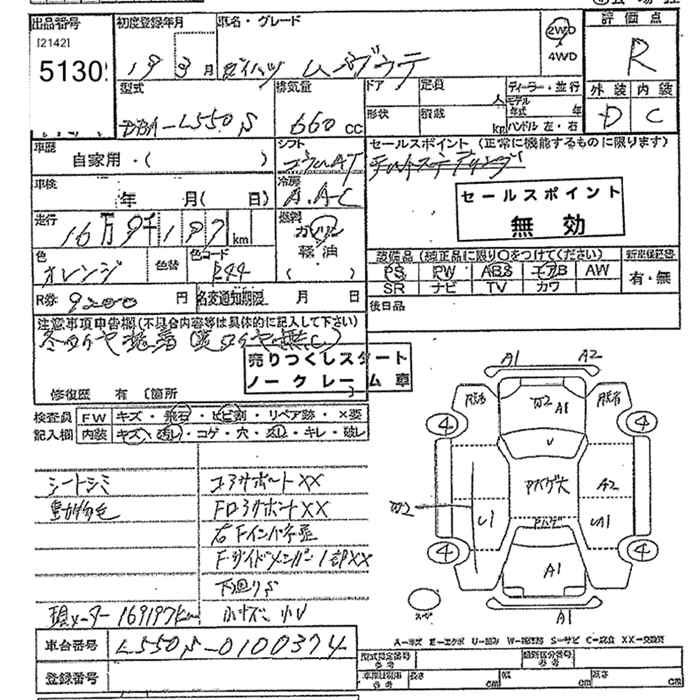 出品番号 初度登録年月 車名・グレード 2WD 4WD 評価点
[2142]
5130 19 3月 ダイハツ ムーヴラテ R
型式 排気量 ドア 定員 人 ディーラー・並行 外装 内装
DBA-L550S 660cc 形状 積載 kg モデル年式 年 ハンドル 左・右 D C
車歴 シフト セールスポイント (正常に機能するものに限ります)
自家用・( ) コラムAT
車検 冷房
年 月( 日) A.A-C セールスポイント
走行 燃料 無効
16万9千197km ガソリン 軽油 ( )
色 色替 色コード 設備品 (純正品に限り○をつけてください) 新車保証書
オレンジ R44 PS PW ABS エアB AW 有・無
R券 9200円 名変通知期限 月 日 SR ナビ TV カワ
後日品
注意事項申告欄 (不具合内容等は具体的に記入して下さい)
冬タイヤ装着 (夏タイヤ無し)
売りつくしスタート
ノークレーム車
修復歴 有 (箇所
検査員 FW キズ・飛石・ヒビ割・リペア跡・×要
記入欄 内装 キズ・汚レ・コゲ・穴・スレ・キレ・破レ
シートシミ コアサポートXX
動物毛 FロアサポートXX
右Fインパネ歪
FサイドメンバーXX
下廻りS
現メーター 169197km 小キズ 小U
A1 A2
脱着 W2 A1 脱着
4 4
U
Aバゲ大 A2
W2 U1 U1
4 4
A1
A1
スペア
A-キズ E-エクボ U-凹み W-補修跡 S-サビ C-腐食 XX-交換済
車台番号 L550S-0100374
型式指定番号 参考 類別区分番号 参考
登録番号 長さ cm 幅 cm 高さ cm